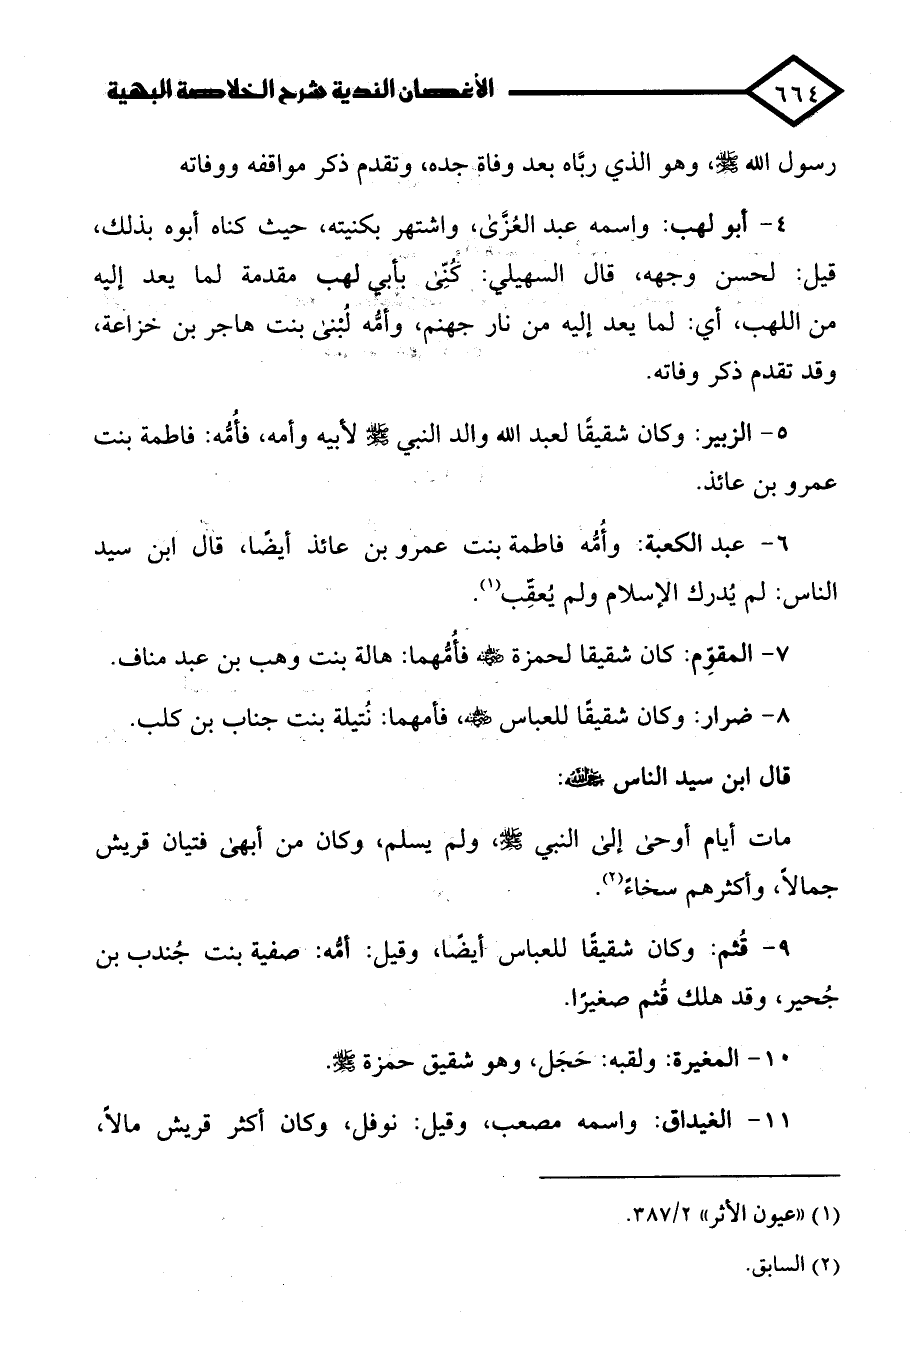 ٦٦٤ الأغصان الندية شرح الخلاصة البهية
رسول الله ﷺ، وهو الذي ربَّاه بعد وفاة جده، وتقدم ذكر مواقفه ووفاته
٤- أبو لهب: واسمه عبد العُزَّىٰ، واشتهر بكنيته، حيث كناه أبوه بذلك،
قيل: لحسن وجهه، قال السهيلي: كُنِّىٰ بأبي لهب مقدمة لما يعد إليه
من اللهب، أي: لما يعد إليه من نار جهنم، وأمُّه لُبْنىٰ بنت هاجر بن خزاعة،
وقد تقدم ذكر وفاته.
٥- الزبير: وكان شقيقًا لعبد الله والد النبي ﷺ لأبيه وأمه، فأُمُّه: فاطمة بنت
عمرو بن عائذ.
٦- عبد الكعبة: وأُمُّه فاطمة بنت عمرو بن عائذ أيضًا، قال ابن سيد
الناس: لم يُدرك الإسلام ولم يُعقِّب(١).
٧- المقوِّم: كان شقيقا لحمزة رضي الله عنه فأُمُّهما: هالة بنت وهب بن عبد مناف.
٨- ضرار: وكان شقيقًا للعباس رضي الله عنه، فأمهما: نُتيلة بنت جناب بن كلب.
قال ابن سيد الناس رحمه الله:
مات أيام أوحىٰ إلىٰ النبي ﷺ، ولم يسلم، وكان من أبهىٰ فتيان قريش
جمالاً، وأكثرهم سخاءً(٢).
٩- قُثم: وكان شقيقًا للعباس أيضًا، وقيل: أمُّه: صفية بنت جُندب بن
جُحير، وقد هلك قُثم صغيرًا.
١٠- المغيرة: ولقبه: حَجَل، وهو شقيق حمزة ﷺ.
١١- الغيداق: واسمه مصعب، وقيل: نوفل، وكان أكثر قريش مالاً،
(١) «عيون الأثر» ٣٨٧/٢.
(٢) السابق.